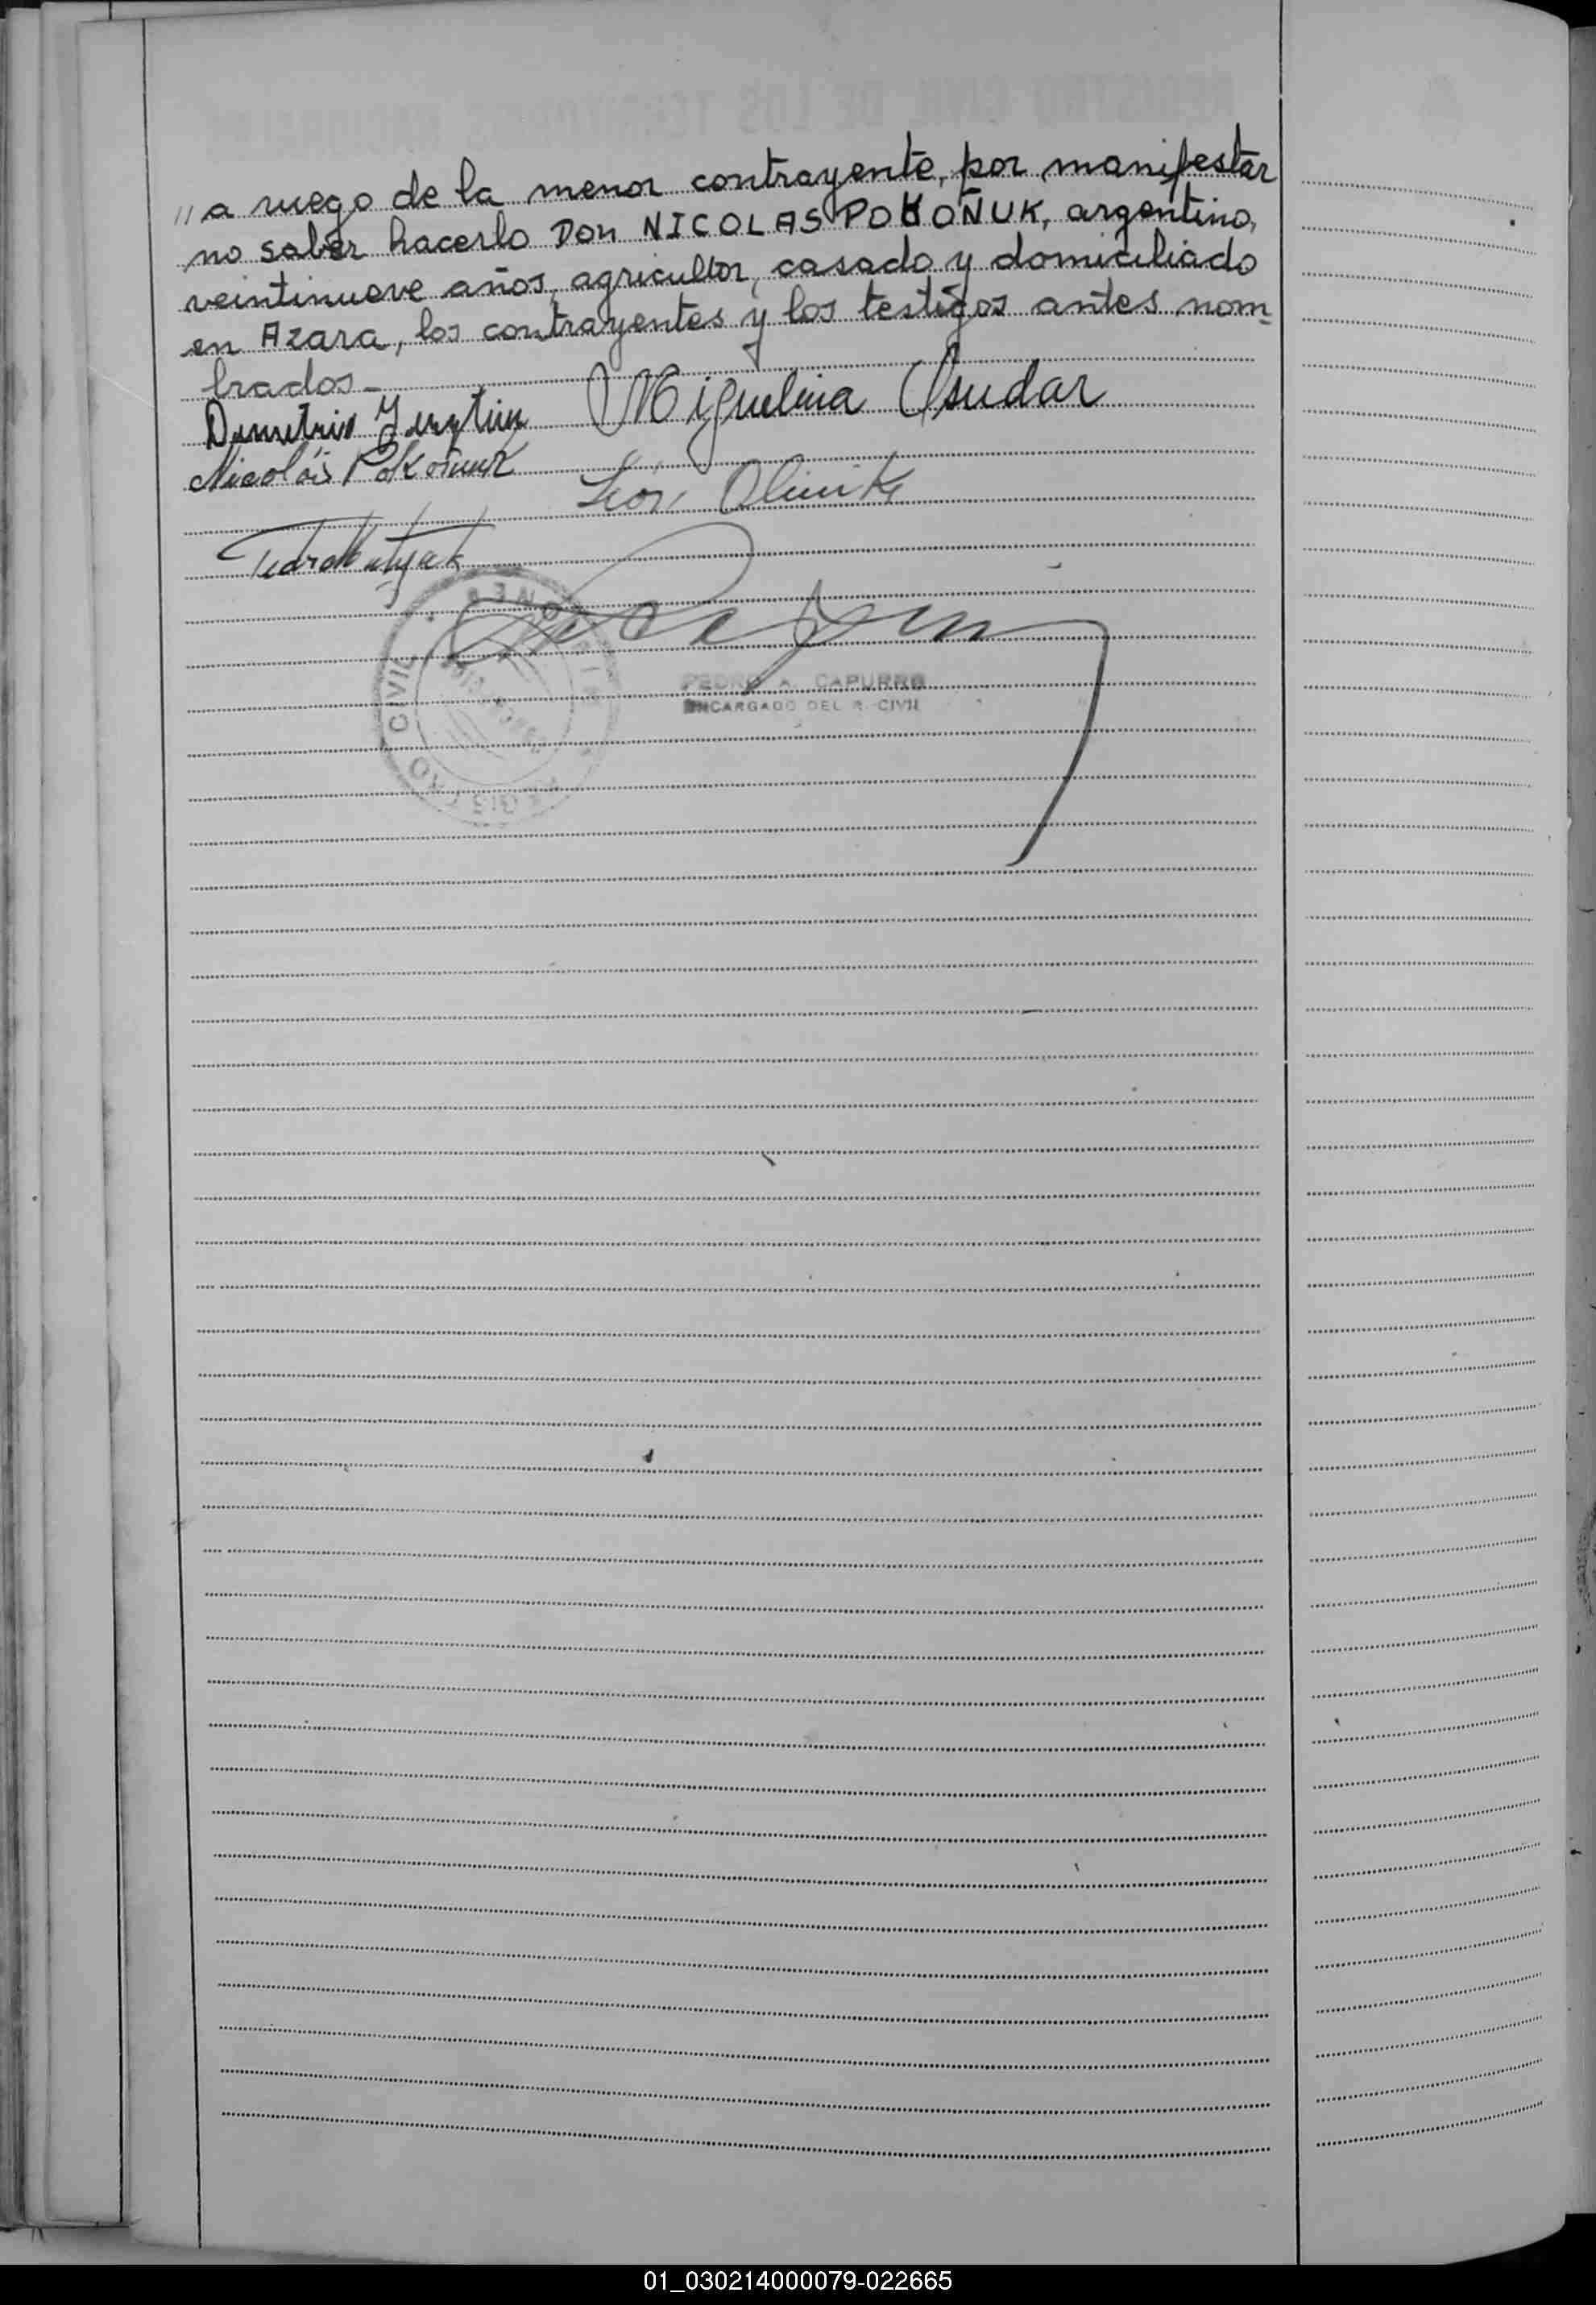 "a ruego de la menor contrayente, por manifestar
no saber hacerlo Don NICOLAS POKOÑUK, argentino,
veintinueve años, agricultor, casado y domiciliado
en Azara, los contrayentes y los testigos antes nom-
brados-
Demetrio
Miguelina Osudar
Nicolás Pokoñuk
León Olinik
Pedro
PEDRO A. CAPURRO
ENCARGADO DEL R. CIVIL
REGISTRO CIVIL
MISIONES
01_030214000079-022665